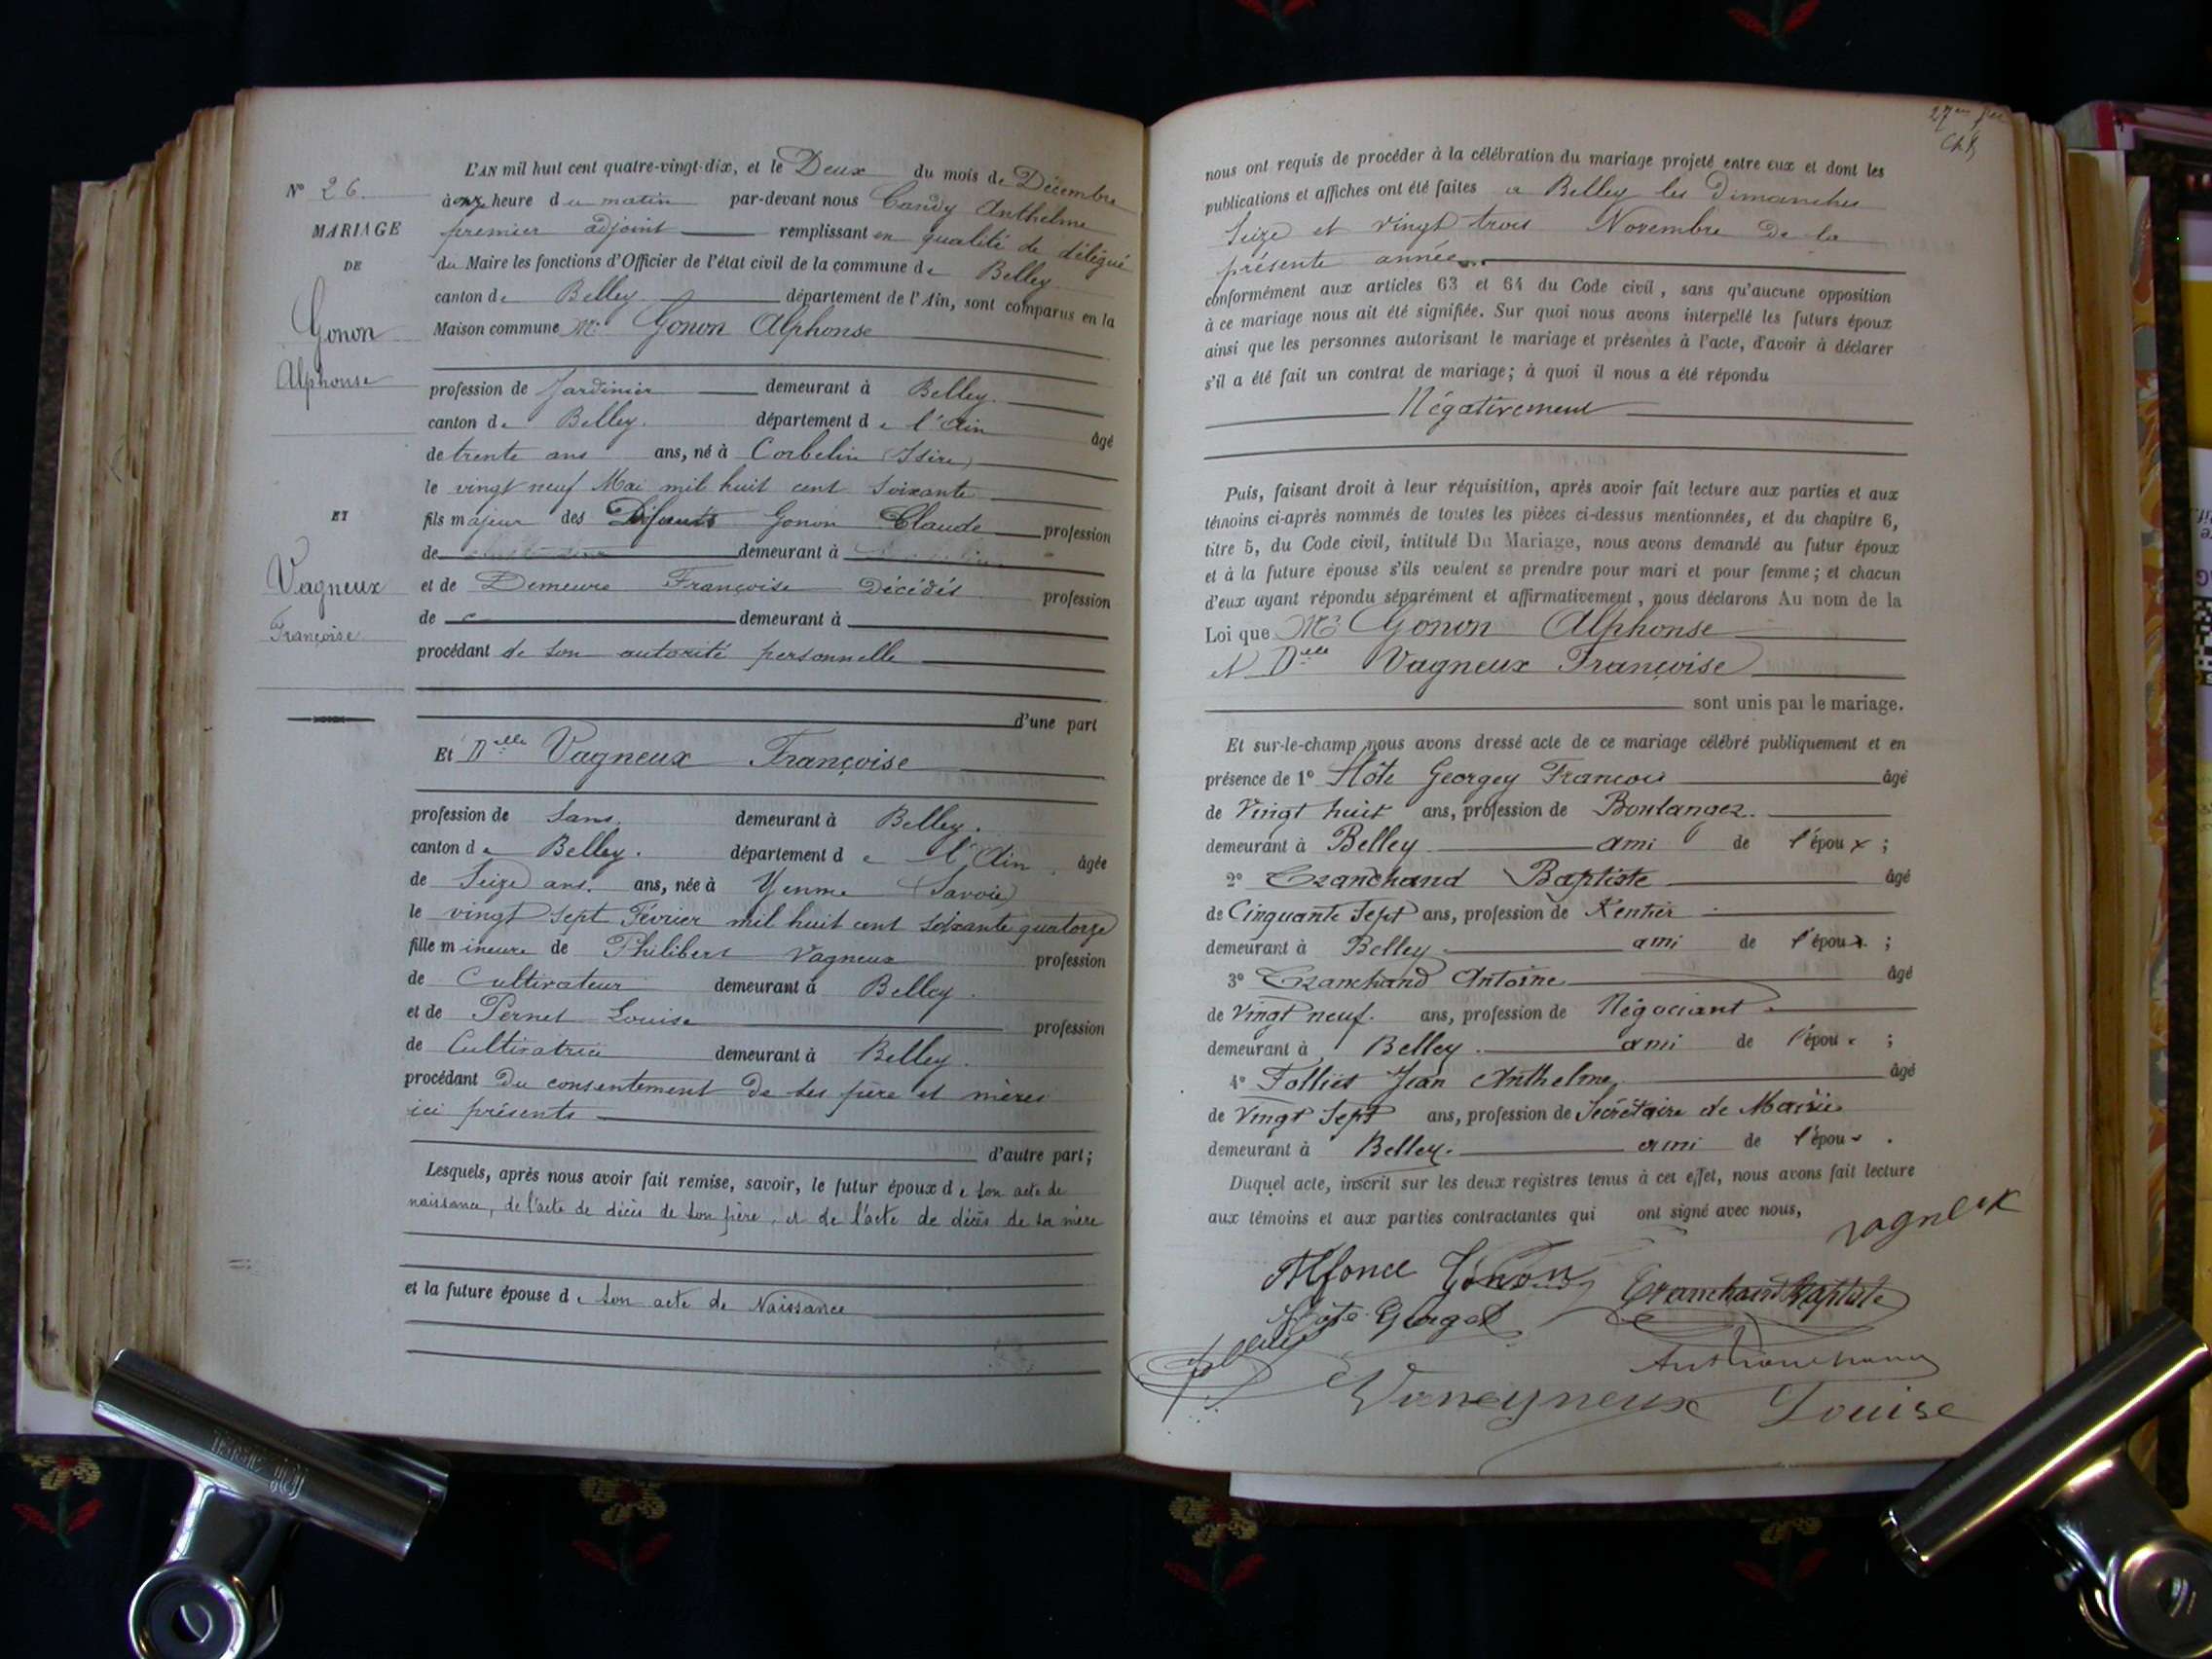 N° 26
MARIAGE
DE
Gonon
Alphonse
ET
Vagneux
Françoise
L'AN mil huit cent quatre-vingt-dix, et le Deux du mois de Décembre
à onze heure du matin par-devant nous Candy Anthelme
premier adjoint remplissant en qualité de délégué
du Maire les fonctions d'Officier de l'état civil de la commune de Belley
canton de Belley département de l'Ain, sont comparus en la
Maison commune Mr Gonon Alphonse
profession de Jardinier demeurant à Belley.
canton de Belley. département de l'Ain âgé
de trente ans ans, né à Corbelin (Isère)
le vingt neuf Mai mil huit cent soixante
fils majeur des Défunts Gonon Claude profession
de demeurant à
et de Demeure Françoise Décédés profession
de demeurant à
procédant de son autorité personnelle
d'une part
Et Delle Vagneux Françoise
profession de Sans. demeurant à Belley.
canton de Belley. département de l'Ain, âgée
de Seize ans. ans, née à Yenne (Savoie)
le vingt sept Février mil huit cent soixante quatorze
fille mineure de Philibert Vagneux profession
de Cultivateur demeurant à Belley.
et de Pernet Louise profession
de Cultivatrice demeurant à Belley.
procédant du consentement de ses père et mères
ici présents
d'autre part;
Lesquels, après nous avoir fait remise, savoir, le futur époux de son acte de
naissance, de l'acte de décès de son père, et de l'acte de décès de sa mère
et la future épouse de son acte de Naissance
27
nous ont requis de procéder à la célébration du mariage projeté entre eux et dont les
publications et affiches ont été faites à Belley les Dimanches
Seize et vingt trois Novembre de la
présente année.
conformément aux articles 63 et 64 du Code civil, sans qu'aucune opposition
à ce mariage nous ait été signifiée. Sur quoi nous avons interpellé les futurs époux
ainsi que les personnes autorisant le mariage et présentes à l'acte, d'avoir à déclarer
s'il a été fait un contrat de mariage; à quoi il nous a été répondu
Négativement
Puis, faisant droit à leur réquisition, après avoir fait lecture aux parties et aux
témoins ci-après nommés de toutes les pièces ci-dessus mentionnées, et du chapitre 6,
titre 5, du Code civil, intitulé Du Mariage, nous avons demandé au futur époux
et à la future épouse s'ils veulent se prendre pour mari et pour femme; et chacun
d'eux ayant répondu séparément et affirmativement, nous déclarons Au nom de la
Loi que Mr Gonon Alphonse
et Delle Vagneux Françoise
sont unis par le mariage.
Et sur-le-champ nous avons dressé acte de ce mariage célébré publiquement et en
présence de 1° Hôte Georgey François âgé
de Vingt huit ans, profession de Boulanger.
demeurant à Belley ami de l'époux;
2° Tranchand Baptiste âgé
de Cinquante Sept ans, profession de Rentier
demeurant à Belley ami de l'époux;
3° Tranchand Antoine âgé
de Vingt neuf. ans, profession de Négociant
demeurant à Belley. ami de l'époux;
4° Folliet Jean Anthelme âgé
de Vingt Sept ans, profession de Secrétaire de Mairie
demeurant à Belley. ami de l'époux.
Duquel acte, inscrit sur les deux registres tenus à cet effet, nous avons fait lecture
aux témoins et aux parties contractantes qui ont signé avec nous,
vagneux
Alfonce Gonon Tranchand Baptiste
Hôte Georgey
Ant Tranchand
Vaneyneux Louise